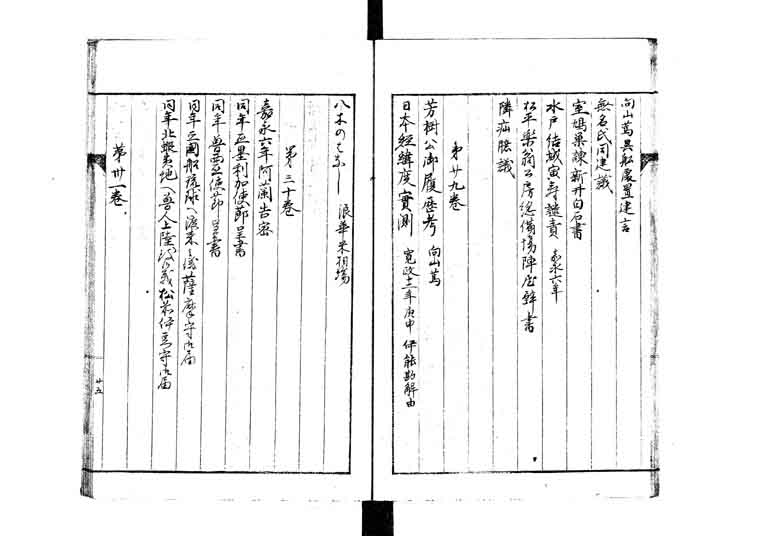 向山篤異船處置建言
無名氏同建議
室鳩巣諫新井白石書
水戸結城寅寿譴責 嘉永六年
松平樂翁公房総備場陣屋辞書
隣疝臆議
第廿九巻
芳樹公御履歴考 向山篤
日本經緯度實測 寛政十二年庚申 伊能勘解由
八木のはなし 浪華米相場
第三十巻
嘉永六年阿蘭告密
同年亞墨利加使節呈書
同年魯西亞使節呈書
同年亞國船琉球へ渡来之儀薩摩守御届
同年北蝦夷地へ魯人上陸 松前伊豆守御届
第卅一巻
廿五